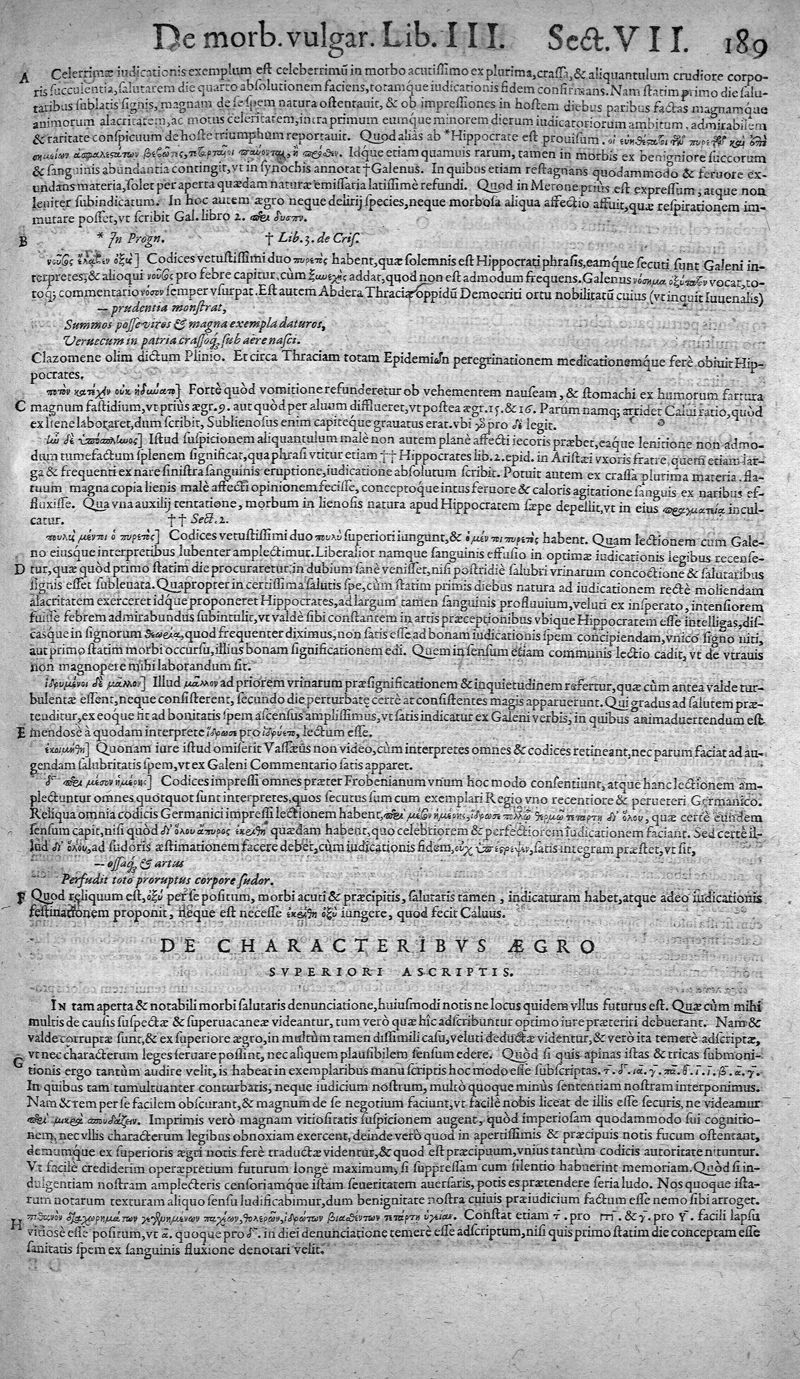 De morb. vulgar. Lib. III. Sect. VII. 189
A Celerrimæ iudicationis exemplum est celeberrimū in morbo acutissimo ex plurima, crassa, & aliquantulum crudiore corpo-
ris succulentia, salutarem die quarto absolutionem faciens, totamque iudicationis fidem confirmans. Nam statim primo die salu-
taribus sublatis signis, magnam de se spem natura ostentauit, & ob impressiones in hostem diebus paribus factas magnamque
animorum alacritatem, ac motus celeritatem, intra primum eumque minorem dierum iudicatoriorum ambitum, admirabilem
& raritate conspicuum de hoste triumphum reportauit. Quod alias ab *Hippocrate est prouisum.
Idque etiam quamuis rarum, tamen in morbis ex benigniore succorum
& sanguinis abundantia contingit, vt in synochis annotat †Galenus. In quibus etiam restagnans quodammodo & feruore ex-
undans materia, solet per aperta quædam naturæ emissaria latissimè refundi. Quod in Merone prius est expressum, atque non
leniter subindicatum. In hoc autem ægro neque delirij species, neque morbosa aliqua affectio affuit, quæ respirationem im-
mutare posset, vt scribit Gal. libro 2.
B * In Progn. † Lib. 3. de Cris.
Codices vetustissimi duo πυρετὸς habent, quæ solemnis est Hippocrati phrasis, eamque secuti sunt Galeni in-
terpretes, & alioqui νοῦσος pro febre capitur, cùm addat, quod non est admodum frequens. Galenus vocat, to-
toq; commentario νόσον semper vsurpat. Est autem Abdera Thraciæ oppidū Democriti ortu nobilitatū cuius (vt inquit Iuuenalis)
— prudentia monstrat,
Summos posse viros & magna exempla daturos,
Veruecum in patria crassoq; sub aere nasci.
Clazomene olim dictum Plinio. Et circa Thraciam totam Epidemiῶν peregrinationem medicationemque ferè obiuit Hip-
pocrates.
Fortè quòd vomitione refunderetur ob vehementem nauseam, & stomachi ex humorum fartura
C magnum fastidium, vt prius ægr. 9. aut quòd per aluum difflueret, vt postea ægr. 15. & 16. Parum namq; arridet Calui ratio, quòd
ex liene laboraret, dum scribit, Sublienosus enim capiteque grauatus erat. vbi γὰρ pro δὲ legit.
Istud suspicionem aliquantulum malè non autem planè affecti iecoris præbet, eaque lenitione non admo-
dum tumefactum splenem significat, qua phrasi vtitur etiam †† Hippocrates lib. 2. epid. in Aristæi vxoris fratre, quem etiam lar-
ga & frequenti ex nare sinistra sanguinis eruptione, iudicatione absolutum scribit. Potuit autem ex crassa plurima materia. fla-
tuum magna copia lienis malè affecti opinionem fecisse, conceptoque intus feruore & caloris agitatione sanguis ex naribus ef-
fluxisse. Qua vna auxilij tentatione, morbum in lienosis natura apud Hippocratem sæpe depellit, vt in eius incul-
catur. †† Sect. 2.
Codices vetustissimi duo πουλὺ superiori iungunt, & habent. Quam lectionem cum Gale-
no eiusque interpretibus lubenter amplectimur. Liberalior namque sanguinis effusio in optimæ iudicationis legibus recense-
D tur, quæ quòd primo statim die procuraretur, in dubium sanè venisset, nisi postridiè salubri vrinarum concoctione & salutaribus
signis esset subleuata. Quapropter in certissima salutis spe, cùm statim primis diebus natura ad iudicationem rectè moliendam
alacritatem exerceret idque proponeret Hippocrates, ad largum tamen sanguinis profluuium, veluti ex insperato, intensiorem
fuisse febrem admirabundus subintulit, vt valdè sibi constantem in artis præceptionibus vbique Hippocratem esse intelligas, dis-
casque in signorum quod frequenter diximus, non satis esse ad bonam iudicationis spem concipiendam, vnico signo niti,
aut primo statim morbi occursu, illius bonam significationem edi. Quem in sensum etiam communis lectio cadit, vt de vtrauis
non magnopere mihi laborandum sit.
Illud μᾶλλον ad priorem vrinarum præsignificationem & inquietudinem refertur, quæ cùm antea valde tur-
bulentæ essent, neque consisterent, secundo die perturbatę certè at consistentes magis apparuerunt. Qui gradus ad salutem præ-
tenditur, ex eoque fit ad bonitatis spem ascensus amplissimus, vt satis indicatur ex Galeni verbis, in quibus animaduertendum est
E mendosè à quodam interprete pro lectum esse.
Quonam iure istud omiserit Vassæus non video, cùm interpretes omnes & codices retineant, nec parum faciat ad au-
gendam salubritatis spem, vt ex Galeni Commentario satis apparet.
Codices impressi omnes præter Frobenianum vnum hoc modo consentiunt, atque hanc lectionem am-
plectuntur omnes quotquot sunt interpretes, quos secutus sum cum exemplari Regio vno recentiore & perueteri Germanico.
Reliqua omnia codicis Germanici impressi lectionem habent, quæ certè eundem
sensum capit, nisi quòd quædam habent, quo celebriorem & perfectiorem iudicationem faciant. Sed certè il-
lud δι' ὅλου, ad sudoris æstimationem facere debet, cùm iudicationis fidem, satis integram præstet, vt sit,
— ossaq; & artus
Perfudit toto proruptus corpore sudor.
F Quod reliquum est, ὀξὺ per se positum, morbi acuti & præcipitis, salutaris tamen, indicaturam habet, atque adeo iudicationis
festinationem proponit, neque est necesse ἐκρίθη ὀξὺ iungere, quod fecit Caluus.
DE CHARACTERIBVS ÆGRO
SVPERIORI ASCRIPTIS.
IN tam aperta & notabili morbi salutaris denunciatione, huiusmodi notis ne locus quidem vllus futurus est. Quæ cùm mihi
multis de causis suspectæ & superuacaneæ videantur, tum verò quæ hîc adscribuntur optimo iure præteriri debuerant. Nam &
valde corruptæ sunt, & ex superiore ægro, in multùm tamen dissimili casu, veluti deductæ videntur, & verò ita temerè adscriptæ,
vt nec characterum leges seruare possint, nec aliquem plausibilem sensum edere. Quòd si quis apinas istas & tricas submoni-
G tionis ergo tantum audire velit, is habeat in exemplaribus manu scriptis hoc modo esse subscriptas.
In quibus tam tumultuanter conturbatis, neque iudicium nostrum, multò quoque minùs sententiam nostram interponimus.
Nam & rem per se facilem obscurant, & magnum de se negotium faciunt, vt facilè nobis liceat de illis esse securis, ne videamur
Imprimis verò magnam vitiositatis suspicionem augent, quòd imperiosam quodammodo sui cognitio-
nem, nec vllis characterum legibus obnoxiam exercent, deinde verò quod in apertissimis & præcipuis notis fucum ostentant,
demumque ex superioris ægri notis ferè traductæ videntur, & quod est præcipuum, vnius tantùm codicis autoritate nituntur.
Vt facilè crediderim operæpretium futurum longè maximum, si suppressam cum silentio habuerint memoriam. Quòd si in-
dulgentiam nostram amplecteris censoriamque istam seueritatem auersaris, potis es prætendere seria ludo. Nos quoque ista-
rum notarum texturam aliquo sensu ludificabimur, dum benignitate nostra cuiuis præiudicium factum esse nemo sibi arroget.
H Constat etiam τ. pro m. & γ. pro Υ. facili lapsu
vidosè esse positum, vt α. quoque pro δ. in diei denunciatione temerè esse adscriptum, nisi quis primo statim die conceptam esse
sanitatis spem ex sanguinis fluxione denotari velit.